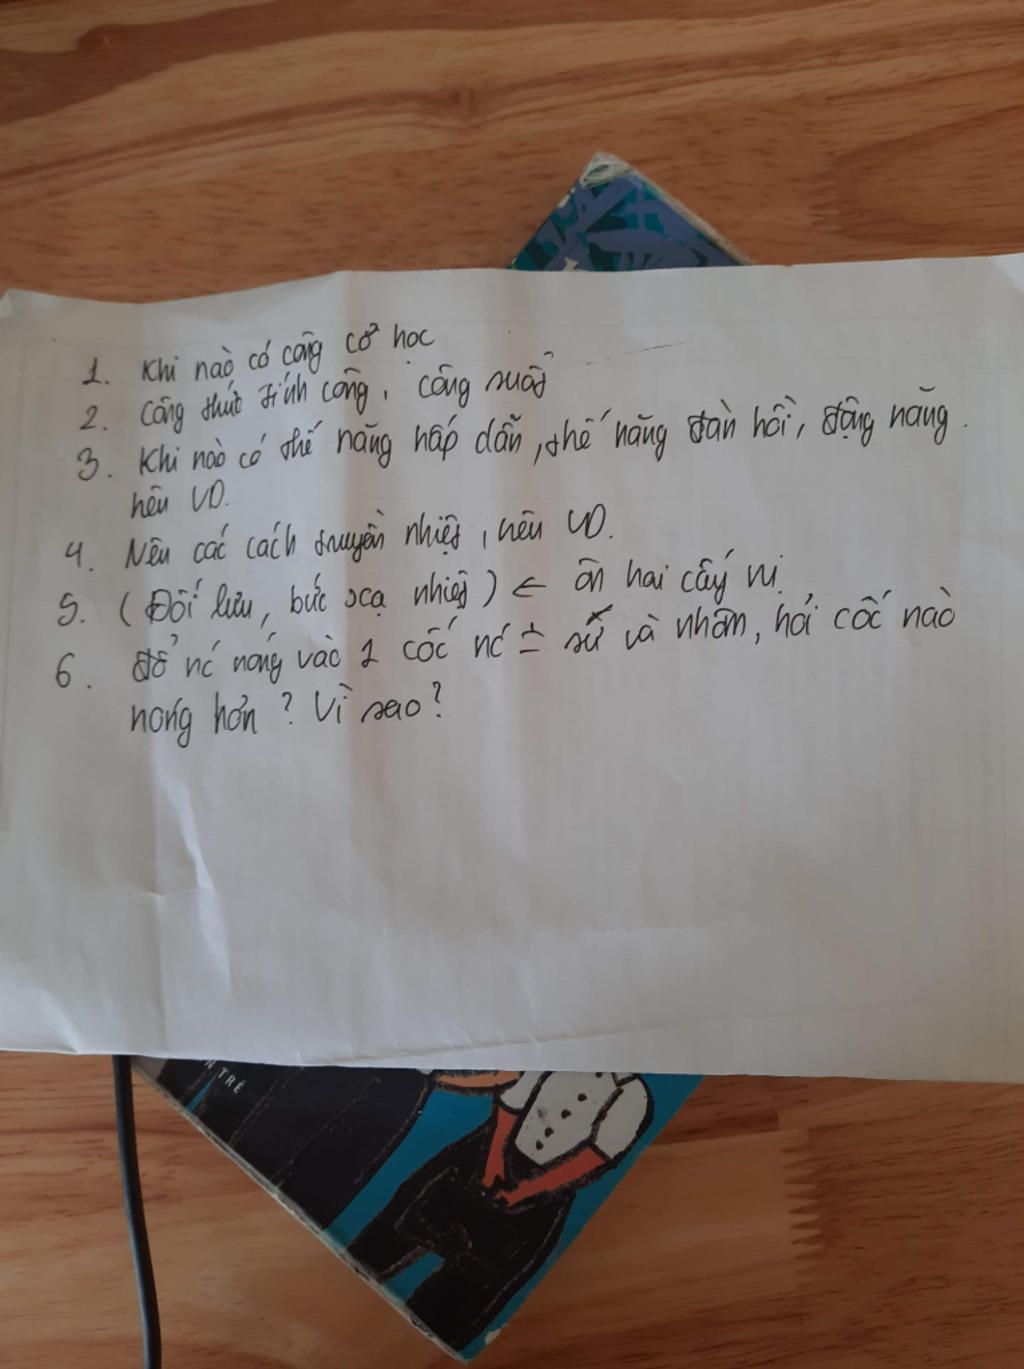 1. Khi nào có công cơ học
2. Công thức tính công, công suất
3. Khi nào có thế năng hấp dẫn, thế năng đàn hồi, động năng.
nêu VD.
4. Nêu các cách truyền nhiệt, nêu VD.
5. (Đối lưu, bức xạ nhiệt) ← ôn hai cấy ni.
6. Đổ nć nóng vào 2 cốc nć = sứ và nhôm, hỏi cốc nào
nóng hơn? Vì sao?
N TRẺ